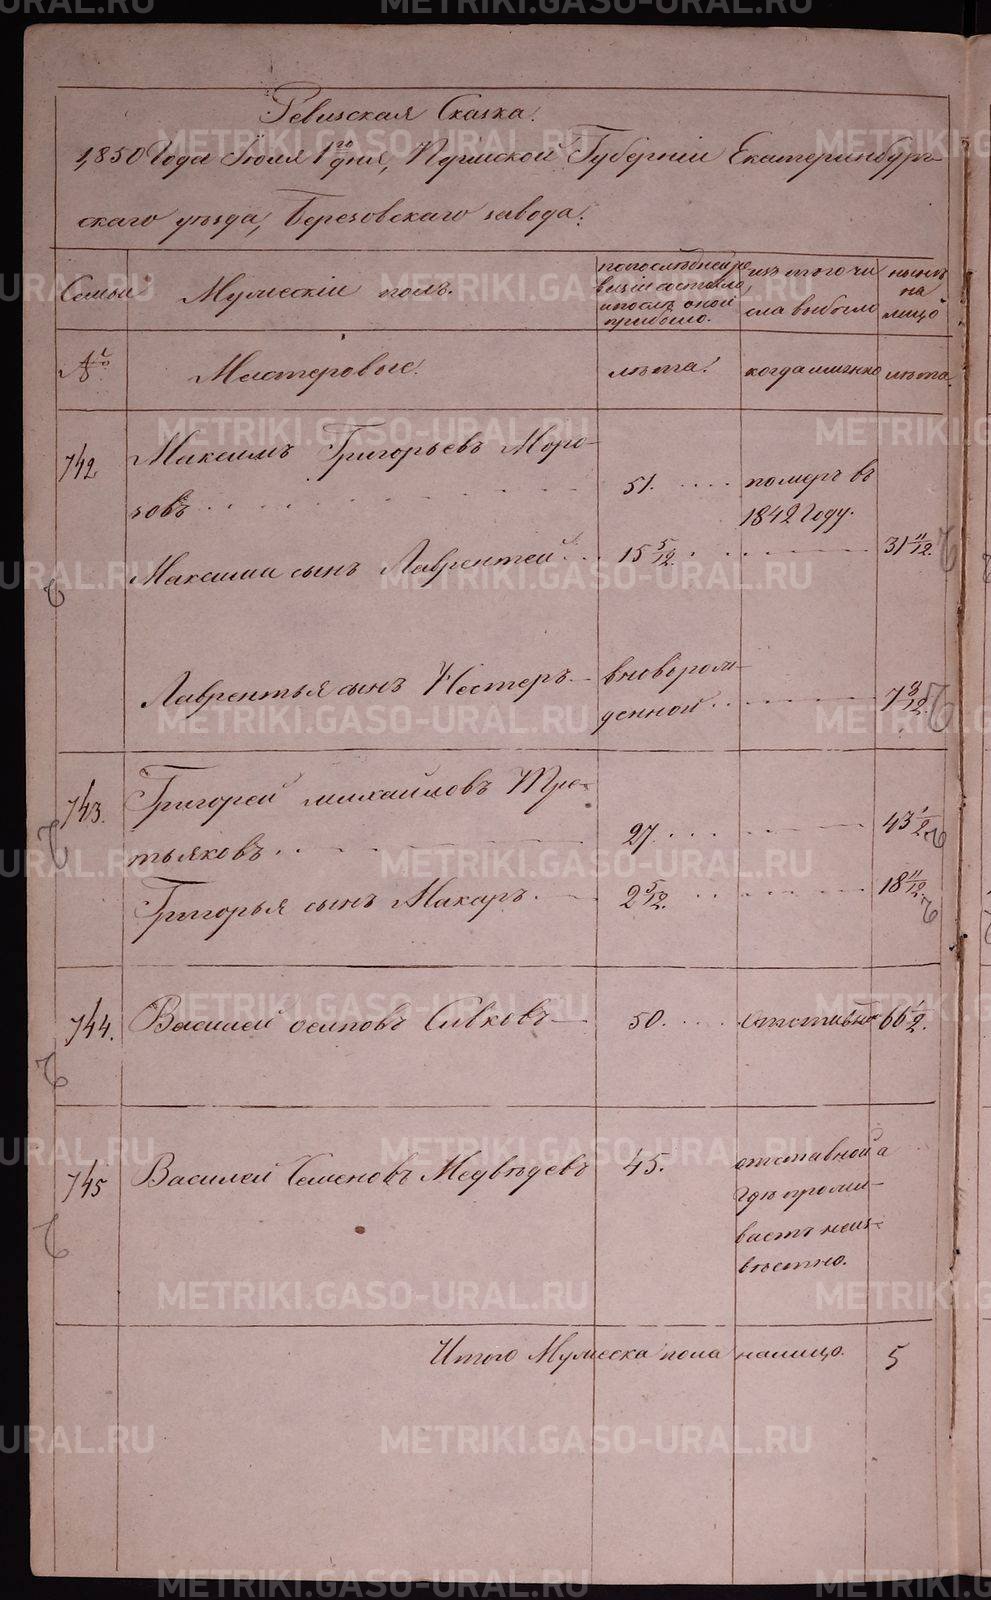 Ревизская Сказка.
1850 Года Июля 1го дня, Пермской Губерніи Екатеринбург-
скаго уѣзда, Березовскаго завода.
Семьи Мужескій полъ. по послѣдней ре- изъ того чи ныне
визіи состояло, сла выбыло на
и послѣ оной лицо
прибыло.
№ Мастеровые. лѣта. когда именно лѣта.
742. Максимъ Григорьевъ Моро-
зовъ 51. померъ въ
1842 Году.
Максима сынъ Лаврентей 15 5/12. 31 11/12.
Лаврентья сынъ Нестеръ вновьрож-
денной 7 8/12.
743. Григорей михайловъ Тре-
тьяковъ 27. 43 1/2
Григорья сынъ Макаръ. 2 5/12. 18 11/12.
744. Василей осиповъ Сивковъ 50. отставной 66 1/2.
745 Василей Семеновъ Медвѣдевъ 45. отставной а
где прожи-
ваетъ неиз-
вѣстно.
Итого Мужеска пола налицо. 5
METRIKI.GASO-URAL.RU